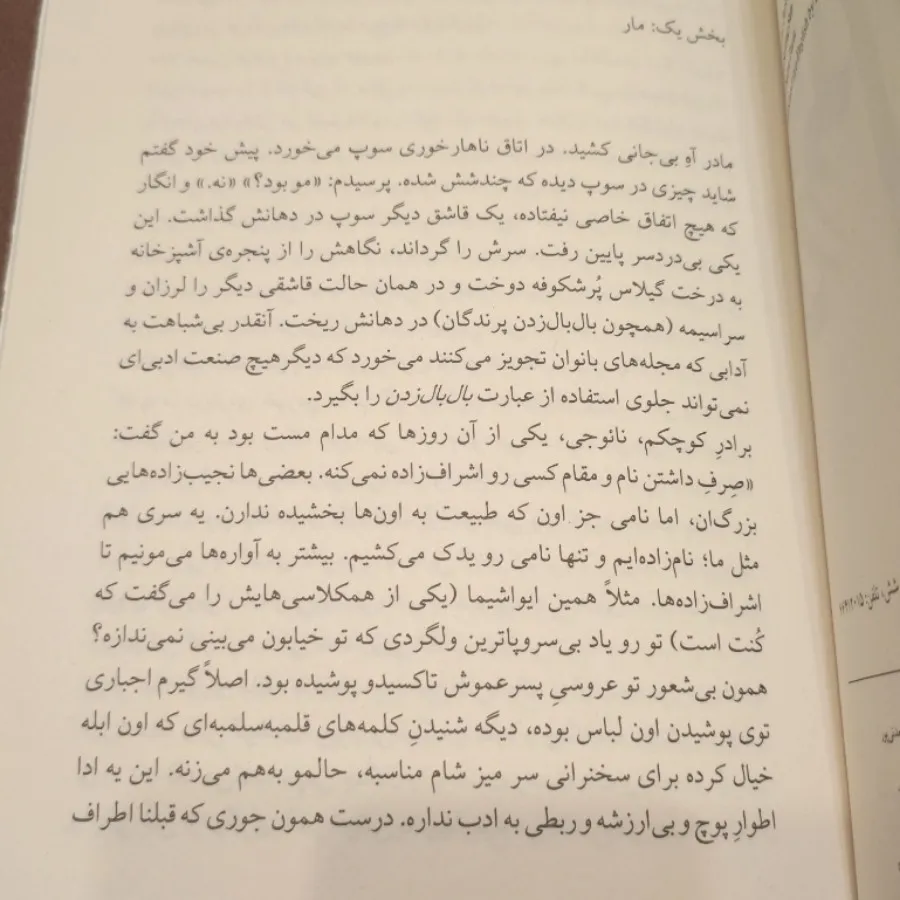 بخش یک: مار
مادر آهِ بی‌جانی کشید. در اتاق ناهارخوری سوپ می‌خورد. پیش خود گفتم
شاید چیزی در سوپ دیده که چندشش شده. پرسیدم: «مو بود؟» «نه.» و انگار
که هیچ اتفاق خاصی نیفتاده، یک قاشق دیگر سوپ در دهانش گذاشت. این
یکی بی‌دردسر پایین رفت. سرش را گرداند، نگاهش را از پنجره‌ی آشپزخانه
به درخت گیلاس پُرشکوفه دوخت و در همان حالت قاشقی دیگر را لرزان و
سراسیمه (همچون بال‌بال‌زدن پرندگان) در دهانش ریخت. آنقدر بی‌شباهت به
آدابی که مجله‌های بانوان تجویز می‌کنند می‌خورد که دیگر هیچ صنعت ادبی‌ای
نمی‌تواند جلوی استفاده از عبارت بال‌بال‌زدن را بگیرد.
برادرِ کوچکم، نائوجی، یکی از آن روزها که مدام مست بود به من گفت:
«صِرفِ داشتن نام و مقام کسی رو اشراف‌زاده نمی‌کنه. بعضی‌ها نجیب‌زاده‌هایی
بزرگ‌ان، اما نامی جز اون که طبیعت به اون‌ها بخشیده ندارن. یه سری هم
مثل ما؛ نام‌زاده‌ایم و تنها نامی رو یدک می‌کشیم. بیشتر به آواره‌ها می‌مونیم تا
اشراف‌زاده‌ها. مثلاً همین ایواشیما (یکی از همکلاسی‌هایش را می‌گفت که
کُنت است) تو رو یاد بی‌سروپاترین ولگردی که تو خیابون می‌بینی نمی‌ندازه؟
همون بی‌شعور تو عروسیِ پسرعموش تاکسیدو پوشیده بود. اصلاً گیرم اجباری
توی پوشیدن اون لباس بوده، دیگه شنیدنِ کلمه‌های قلمبه‌سلمبه‌ای که اون ابله
خیال کرده برای سخنرانی سر میز شام مناسبه، حالمو به‌هم می‌زنه. این یه ادا
اطوارِ پوچ و بی‌ارزشه و ربطی به ادب نداره. درست همون جوری که قبلنا اطراف